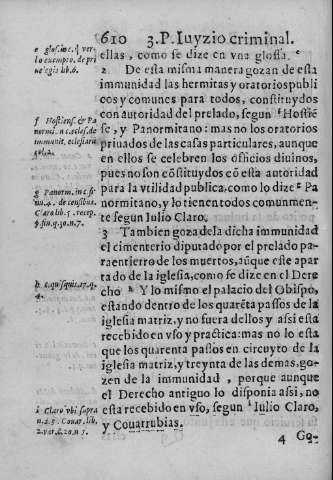 610 3.P. Iuyzio criminal.
ellas, como se dize en vna glossa. e
2 De esta misma manera gozan de esta
immunidad las hermitas y oratorios publi
cos y comunes para todos, constituydos
con autoridad del prelado, segun f Hostiē
se, y Panormitano: mas no los oratorios
priuados de las casas particulares, aunque
en ellos se celebren los officios diuinos,
pues no son cōstituydos cō esta autoridad
para la vtilidad publica, como lo dize g Pa
normitano, y lo tienen todos comunmen-
te segun Iulio Claro.
3 Tambien goza de la dicha immunidad
el cimenterio diputado por el prelado pa-
ra entierro de los muertos, aūque este apar
tado de la iglesia, como se dize en el Dere
cho h Y lo mismo el palacio del Obispo,
estando dentro de los quarēta passos de la
iglesia matriz, y no fuera dellos y assi esta
recebido en vso y practica: mas no lo esta
que los quarenta passos en circuyto de la
iglesia matriz, y treynta de las demas, go-
zen de la immunidad, porque aunque
el Derecho antiguo lo disponia assi, no
esta recebido en vso, segun i Iulio Claro,
y Couarrubias.
4 Go-
e glos. in c. q ver-
bo exempto. de pri
uilegis lib. 6.
f Hostiens. & Pa
normi. in c. eccles. de
immunit. ecclesiarū
g Panorm. in c. si-
nu. 4. de censibus.
Claro lib. 5. recep.
§ fin. q. 30. n. 7.
h c. quisquis. 17. q.
4.
i Claro vbi supra
n. 2. 5. Couar. lib.
2. var. c. 20. n 5.